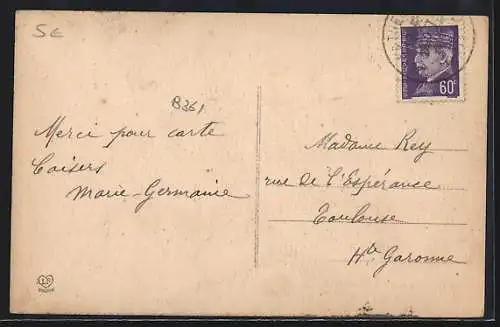 5€
B361
60c
Merci pour carte
Baisers
Marie-Germanie
Madame Rey
rue de l'Espérance
Toulouse
Hte Garonne